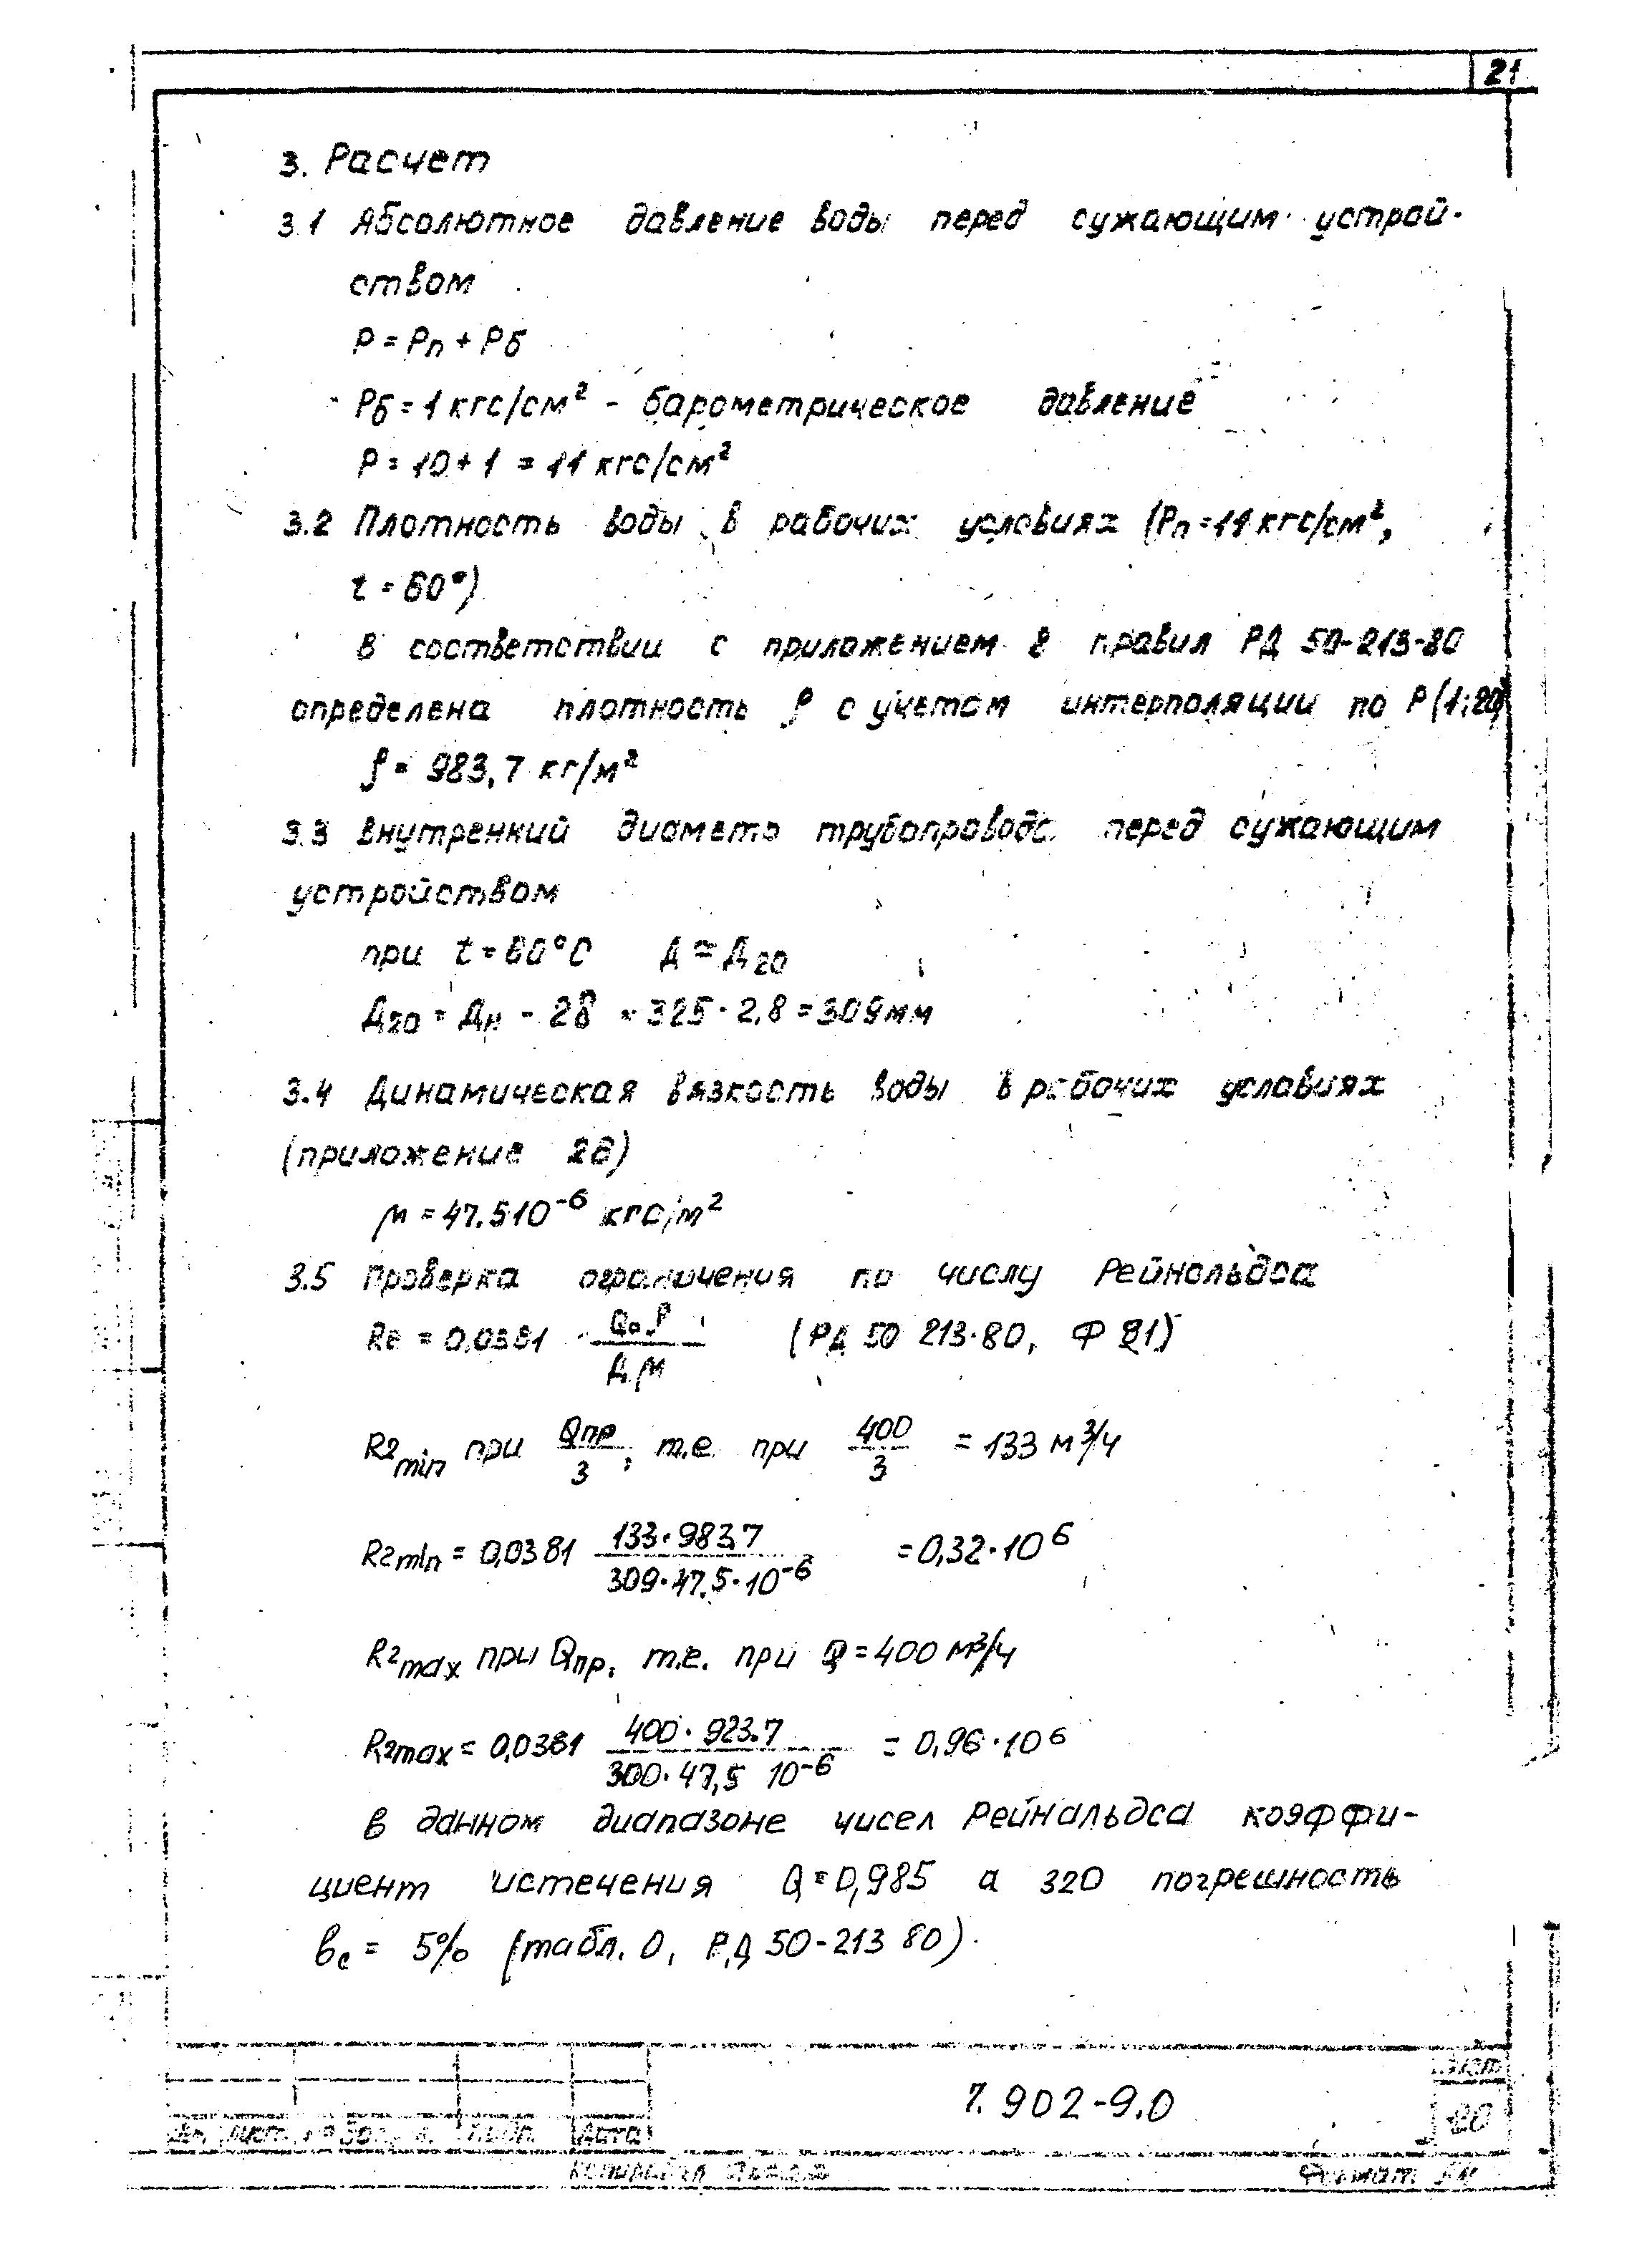 21
3. Расчет
3.1 Абсолютное давление воды перед сужающим устрой-
ством
P = Pп + Pб
Pб = 1 кгс/см² - барометрическое давление
P = 10 + 1 = 11 кгс/см²
3.2 Плотность воды в рабочих условиях (Pп = 11 кгс/см²,
t = 60°)
В соответствии с приложением 8 правил РД 50-213-80
определена плотность ρ с учетом интерполяции по P (1;20)
ρ = 983,7 кг/м²
3.3 Внутренний диаметр трубопровода перед сужающим
устройством
при t = 60°C Д ≈ Д20
Д20 = Дн - 2δ = 325 · 2,8 = 309 мм
3.4 Динамическая вязкость воды в рабочих условиях
(приложение 26)
μ = 47.5 10⁻⁶ кгс/м²
3.5 Проверка ограничения по числу Рейнольдса
Re = 0,0381 · Q₀ρ / Дμ (РД 50 213·80, Ф 81)
R2min при Qпр / 3, т.е. при 400 / 3 = 133 м³/ч
R2min = 0,0381 133·983,7 / 309·47,5·10⁻⁶ = 0,32·10⁶
R2max при Qпр, т.е. при Q = 400 м³/ч
R2max = 0,0381 400·923.7 / 300·47,5 10⁻⁶ = 0,96·10⁶
В данном диапазоне чисел Рейнальдса коэффи-
циент истечения Q = 0,985 а 320 погрешность
вс = 5% (табл. 0, РД 50-213 80).
7.902-9.0
Лист
20
Дата
Копировал
Формат